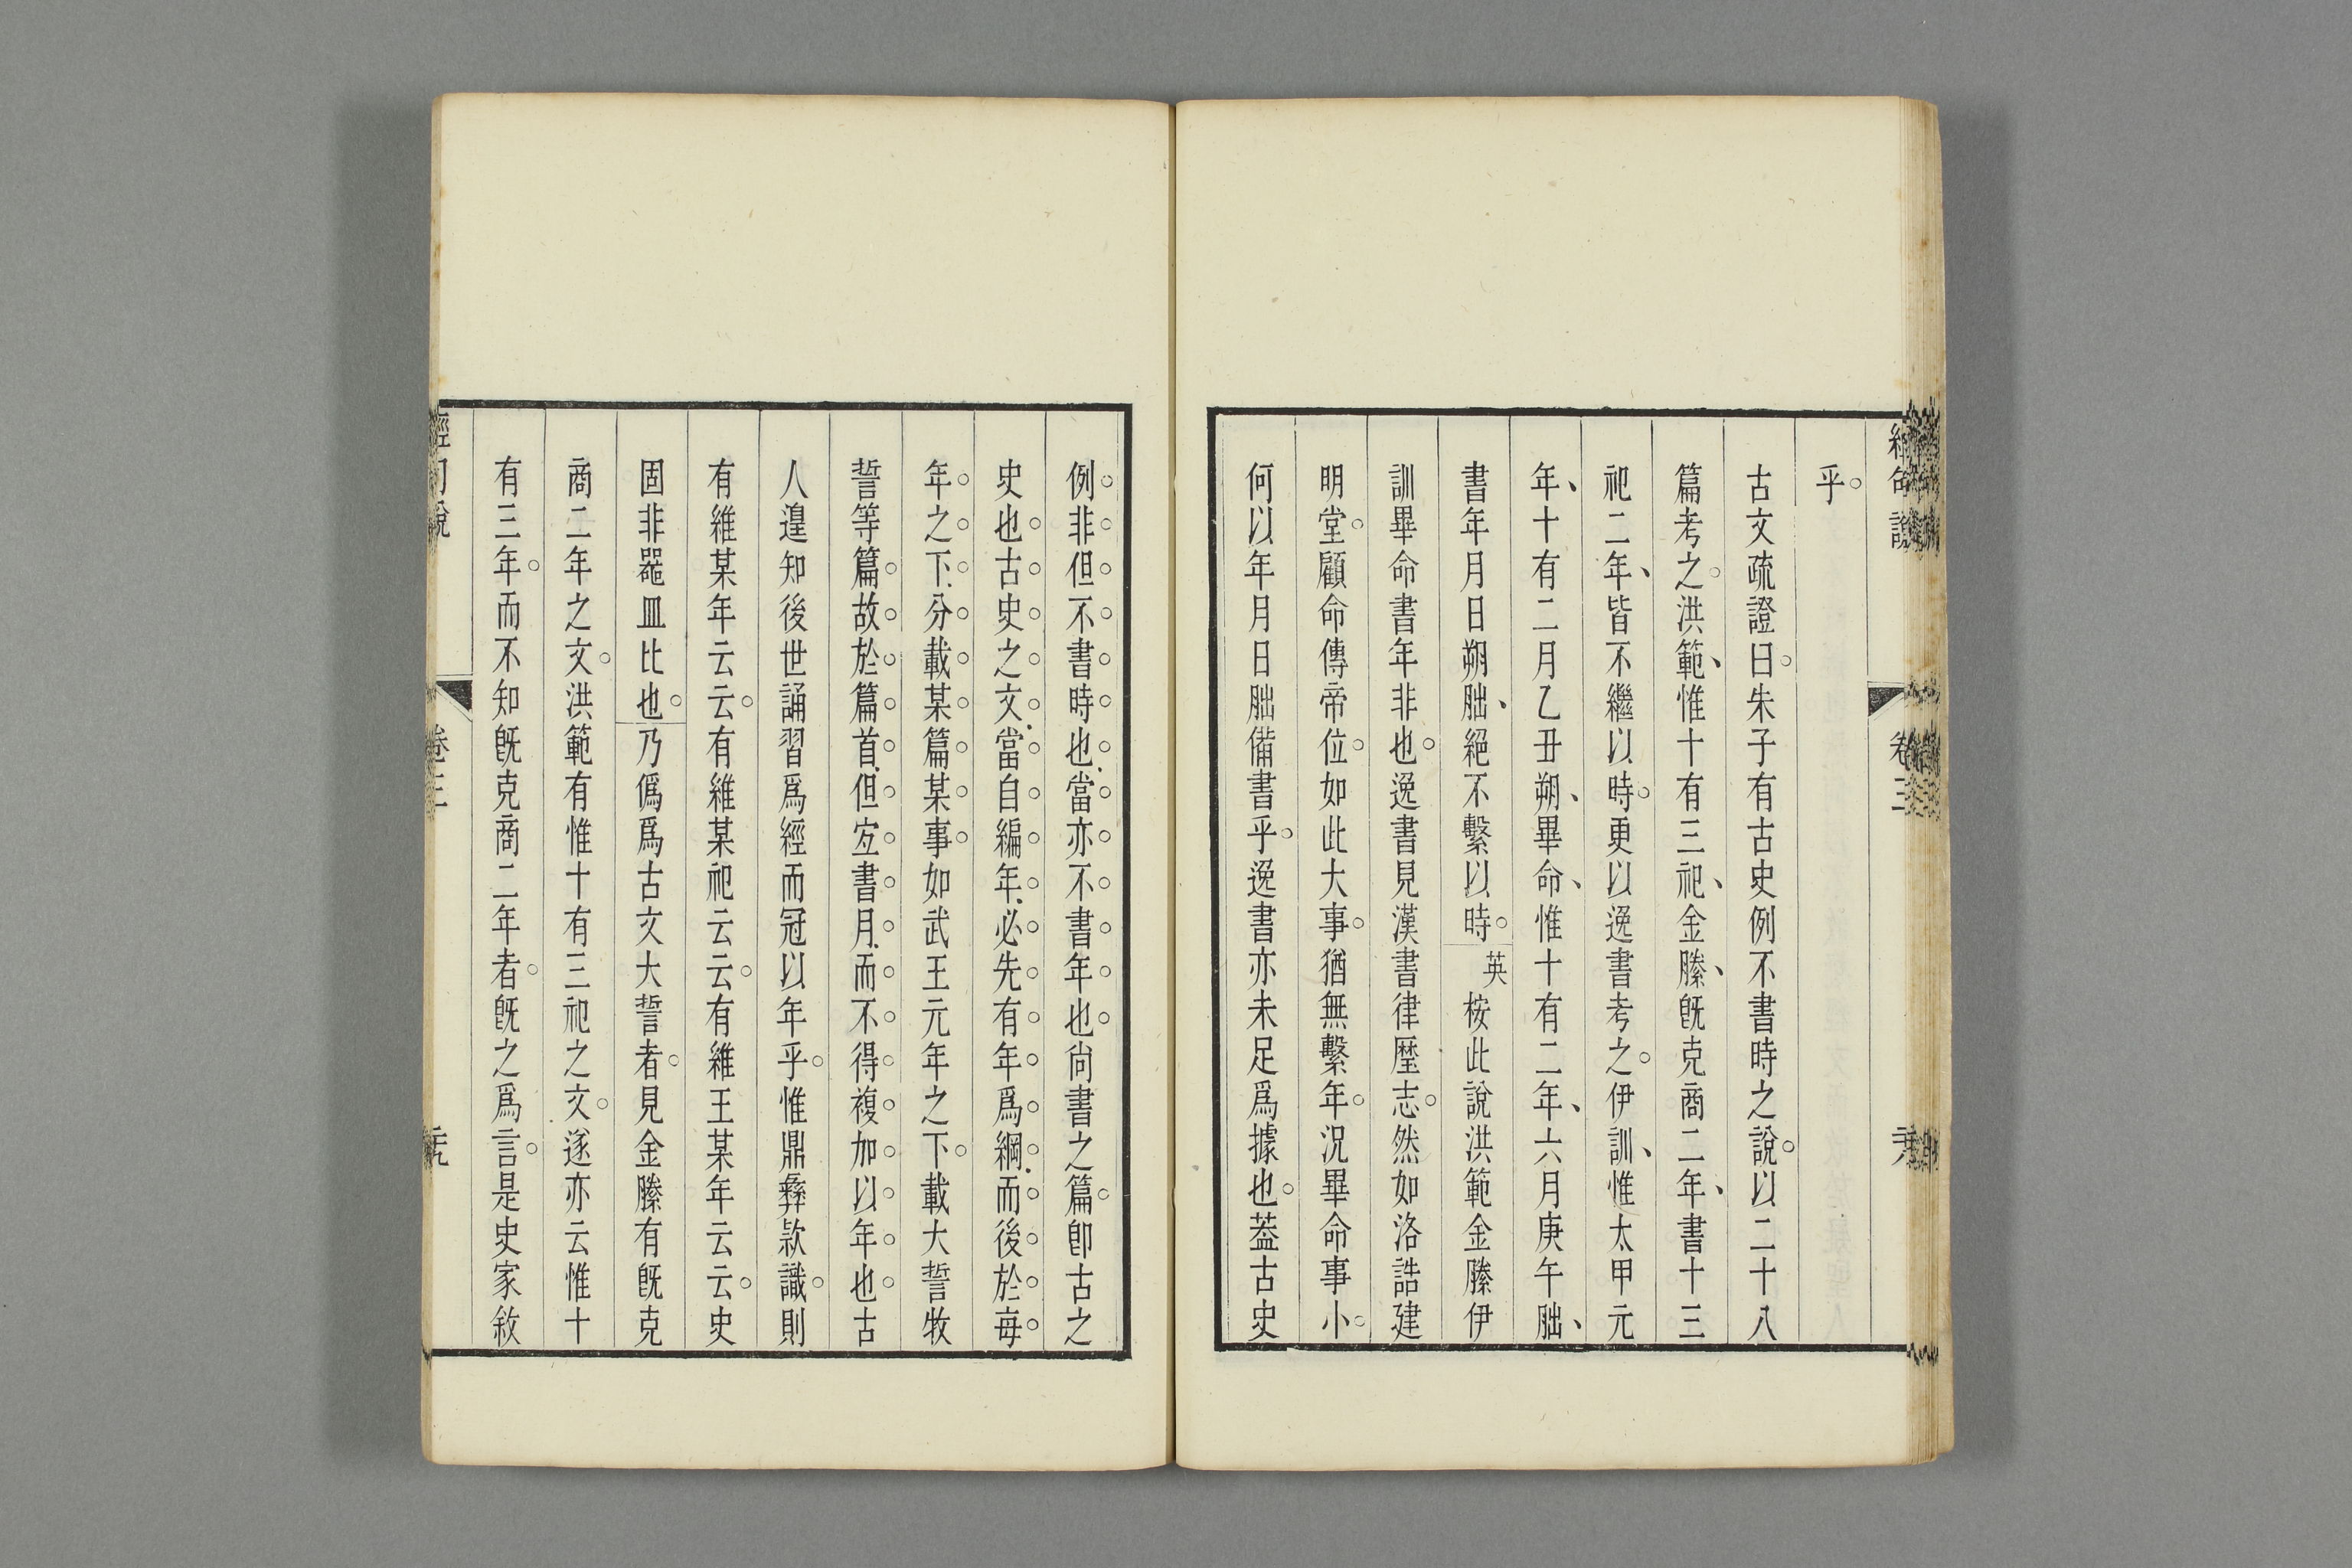 乎。
古文疏證曰。朱子有古史例不書時之說。以二十八
篇考之。洪範、惟十有三祀、金縢、旣克商二年、書十三
祀二年、皆不繼以時。更以逸書考之。伊訓、惟太甲元
年、十有二月乙丑朔、畢命、惟十有二年、六月庚午朏、
書年月日朔朏、絕不繫以時。英桉此說洪範金縢伊
訓畢命書年非也。逸書見漢書律歷志。然如洛誥建
明堂。顧命傳帝位。如此大事。猶無繫年。況畢命事小。
何以年月日朏備書乎。逸書亦未足爲據也。葢古史
例。非但不書時也。當亦不書年也。尙書之篇。卽古之
史也。古史之文。當自編年。必先有年爲綱。而後於每
年之下。分載某篇某事。如武王元年之下。載大誓牧
誓等篇。故於篇首。但宜書月。而不得複加以年也。古
人遑知後世誦習爲經而冠以年乎。惟鼎彝款識。則
有維某年云云。有維某祀云云。有維王某年云云。史
固非器皿比也。乃僞爲古文大誓者。見金縢有旣克
商二年之文。洪範有惟十有三祀之文。遂亦云惟十
有三年。而不知旣克商二年者。旣之爲言。是史家敘